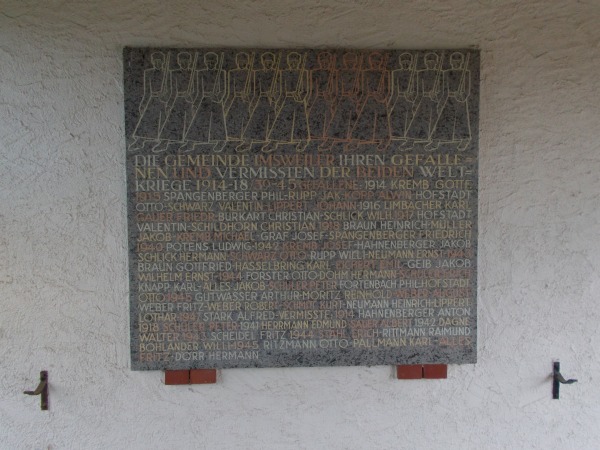 DIE GEMEINDE IMSWEILER IHREN GEFALLE=
NEN UND VERMISSTEN DER BEIDEN WELT-
KRIEGE 1914-18 39-45 GEFALLENE: 1914 KREMB GOTTF
SPANGENBERGER PHIL-RUPP JAK HOFSTADT
OTTO-SCHWARZ VALENTIN-LIPPERT JOHANN 1916 LIMBACHER KARL
GAUER FRIEDR-BURKART CHRISTIAN-SCHLICK WILH 1917 HOFSTADT
VALENTIN-SCHILDHORN CHRISTIAN 1918 BRAUN HEINRICH-MÜLLER
JAKOB MICHAEL GRAF JOSEF-SPANGENBERGER FRIEDRICH
1940 POTENS LUDWIG-1942 KREMB JOSEF-HAHNENBERGER JAKOB
SCHLICK HERMANN SCHWARZ OTTO-RUPP WILLI-NEUMANN ERNST
BRAUN GOTTFRIED-HASSELBRING KARL GEIB JAKOB
WILHELM ERNST-1944 FÖRSTER OTTO DOHM HERMANN
KNAPP KARL-ALLES JAKOB PETER FORTENBACH PHIL HOFSTADT
OTTO 1945 GUTWASSER ARTHUR-MORITZ REINHOLD
WEBER FRITZ-WEBER ROBERT KURT-NEUMANN HEINRICH-LIPPERT
LOTHAR 1947 STARK ALFRED-VERMISSTE: 1914 HAHNENBERGER ANTON
1918 SCHULER PETER 1941 HERRMANN EDMUND SAUER 1942 DAGNE
WALTER SCHEIDEL FRITZ 1944 STAHL ERICH-RITTMANN RAIMUND
BOHLANDER WILLI 1945 RITZMANN OTTO-PALLMANN KARL-ALLES
FRITZ-DÖRR HERMANN